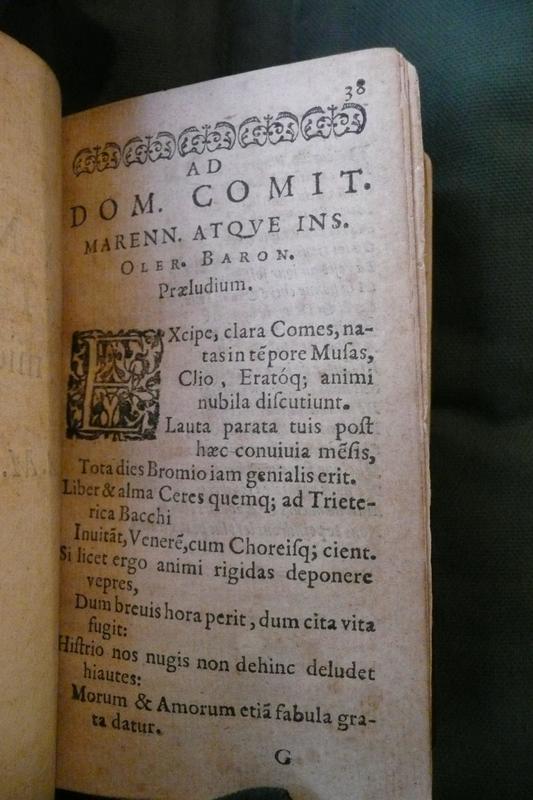 38
AD
DOM. COMIT.
MARENN. ATQVE INS.
OLER. BARON.
Præludium.
EXcipe, clara Comes, na-
tas in tẽpore Muſas,
Clio, Eratóq; animi
nubila diſcutiunt.
Lauta parata tuis poſt
hæc conuiuia mẽſis,
Tota dies Bromio iam genialis erit.
Liber & alma Ceres quemq; ad Triete-
rica Bacchi
Inuitãt, Venerẽ, cum Choreiſq; cient.
Si licet ergo animi rigidas deponere
vepres,
Dum breuis hora perit, dum cita vita
fugit:
Hiſtrio nos nugis non dehinc deludet
hiautes:
Morum & Amorum etiã fabula gra-
ta datur.
G